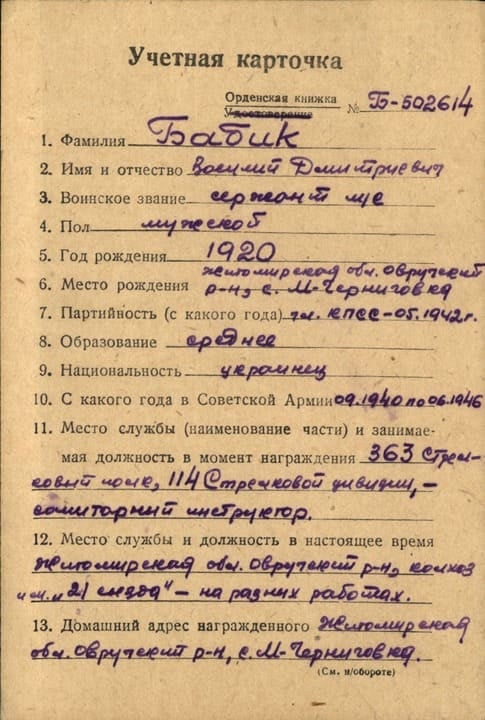 Учетная карточка
Орденская книжка
Удостоверение № Б-502614
1. Фамилия Бабик
2. Имя и отчество Василий Дмитриевич
3. Воинское звание сержант м/с
4. Пол мужской
5. Год рождения 1920
Житомирская обл. Овручский
6. Место рождения р-н, с. М-Черниговка
7. Партийность (с какого года) чл. КПСС-05.1942г.
8. Образование среднее
9. Национальность украинец
10. С какого года в Советской Армии 09.1940 по 06.1946
11. Место службы (наименование части) и занимае-
мая должность в момент награждения 363 Стрел-
ковый полк, 114 Стрелковой дивизии, –
санитарный инструктор.
12. Место службы и должность в настоящее время
Житомирская обл. Овручский р-н, колхоз
им. „21 съезда“ – на разных работах.
13. Домашний адрес награжденного Житомирская
обл. Овручский р-н, с. М-Черниговка.
(См. н/обороте)